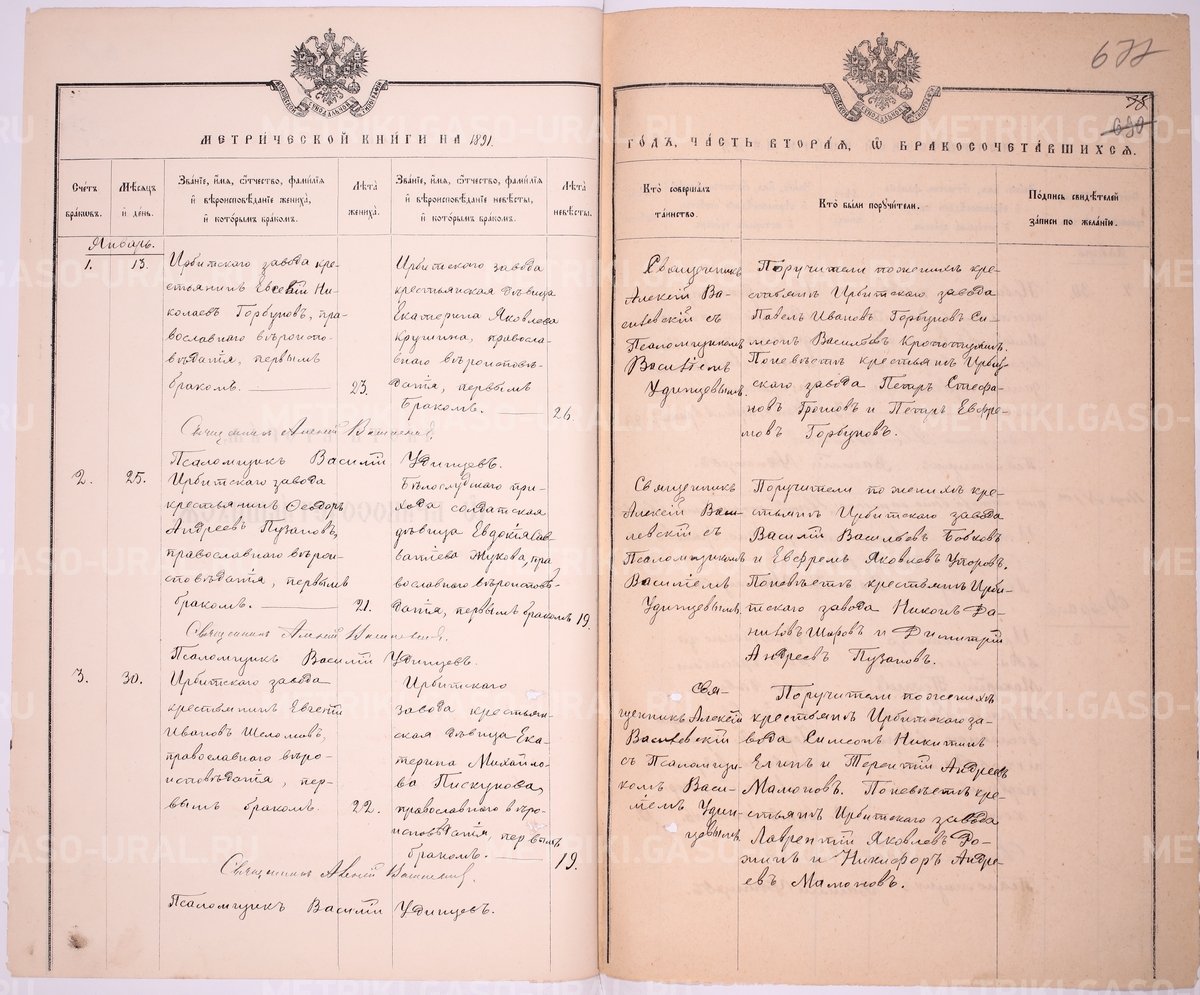 677
78
690
МЕТРИЧЕСКОЙ КНИГИ НА 1891
ГОДЪ, ЧАСТЬ ВТОРАЯ, Ѡ БРАКОСОЧЕТАВШИХСЯ.
Счетъ браковъ.
Мѣсяцъ и день.
Званіе, имя, отчество, фамилія и вѣроисповѣданіе жениха, и которымъ бракомъ.
Лѣта жениха.
Званіе, имя, отчество, фамилія и вѣроисповѣданіе невѣсты, и которымъ бракомъ.
Лѣта невѣсты.
Кто совершалъ таинство.
Кто были поручители.
Подпись свидѣтелей записи по желанію.
Январь.
1.
13.
Ирбитскаго завода кре-
стьянинъ Евсевій Ни-
колаевъ Горбуновъ, пра-
вославнаго вѣроиспо-
вѣданія, первымъ
бракомъ.
23.
Ирбитскаго завода
крестьянская дѣвица
Екатерина Яковлева
православ-
наго вѣроисповѣ-
данія, первымъ
бракомъ.
26.
Священникъ
Алексій Ва-
силевскій съ
Псаломщикомъ
Василіемъ
Удинцевымъ.
Поручители по женихѣ кре-
стьянинъ Ирбитскаго завода
Павелъ Ивановъ Горбуновъ Си-
меонъ Васильевъ
По невѣстѣ крестьянинъ Ирбит-
скаго завода Петръ Стефа-
новъ и Петръ Евфре-
мовъ Горбуновъ.
Священникъ Алексій Василевскій
Псаломщикъ Василій Удинцевъ.
2.
25.
Ирбитскаго завода
крестьянинъ Ѳеодоръ
Андреевъ Пузановъ,
православнаго вѣрои-
сповѣданія, первымъ
бракомъ.
21.
Бѣлослудскаго при-
хода солдатская
дѣвица Евдокія Сав-
ватіева Жукова, пра-
вославнаго вѣроисповѣ-
данія, первымъ бракомъ
19.
Священникъ
Алексій Васи-
левскій съ
Псаломщикомъ
Василіемъ
Удинцевымъ
Поручители по женихѣ кре-
стьянинъ Ирбитскаго завода
Василій Васильевъ Бобковъ
и Евфремъ Яковлевъ Упоровъ.
По невѣстѣ крестьянинъ Ирби-
тскаго завода Никонъ Да-
ниловъ Шаровъ и Димитрій
Андреевъ Пузановъ.
Священникъ Алексій Василевскій.
Псаломщикъ Василій Удинцевъ.
3.
30.
Ирбитскаго завода
крестьянинъ Евгеній
Ивановъ Шеломовъ,
православнаго вѣро-
исповѣданія, пер-
вымъ бракомъ.
22.
Ирбитскаго
завода крестьян-
ская дѣвица Ека-
терина Михайло-
ва Пискунова,
православнаго вѣро-
исповѣданія, первымъ
бракомъ.
19.
Свя-
щенникъ Алексій
Василевскій
съ Псаломщи-
комъ Васи-
ліемъ Удин-
цевымъ
Поручители по женихѣ
крестьянъ Ирбитскаго за-
вода Симеонъ Никитинъ
Елинъ и Терентій Андреевъ
Мамоновъ. По невѣстѣ кре-
стьянъ Ирбитскаго завода
Лаврентій Яковлевъ Ро-
жинъ и Никифоръ Андре-
евъ Мамоновъ.
Священникъ Алексій Василевскій.
Псаломщикъ Василій Удинцевъ.
METRIKI.GASO-URAL.RU